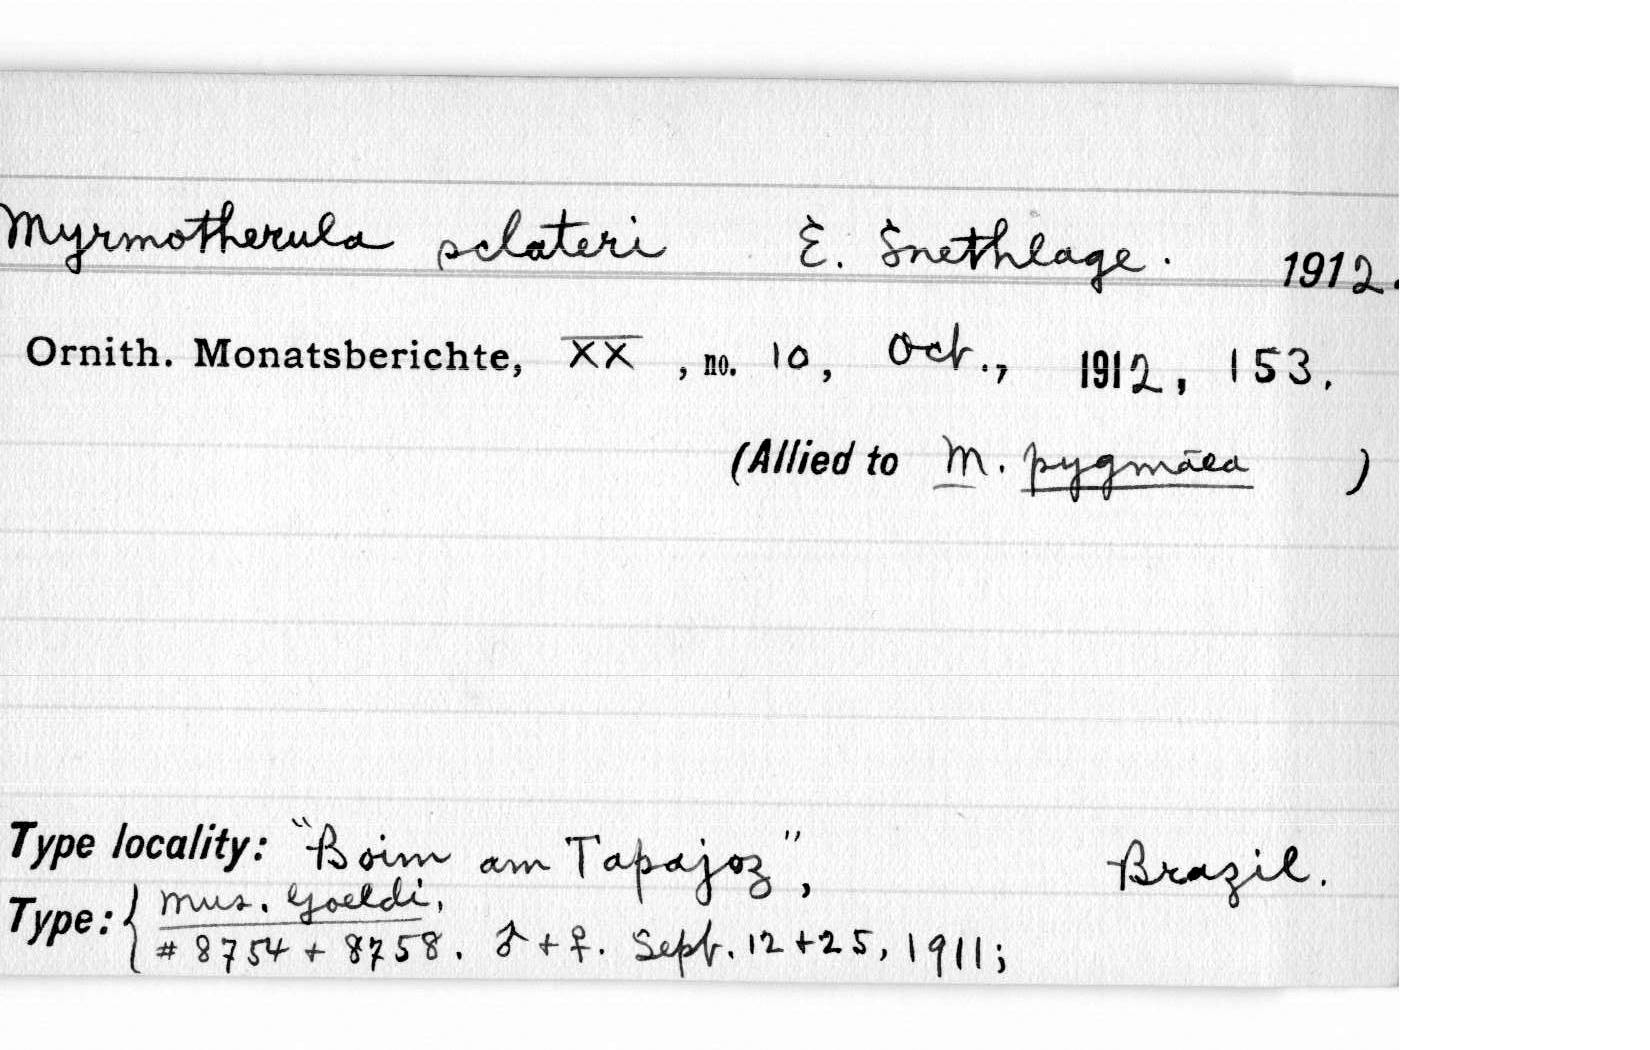 Myrmotherula sclateri E. Snethlage. 1912.
Ornith. Monatsberichte, XX, no. 10, Oct., 1912, 153.
(Allied to M. pygmaea )
Type locality: "Boim am Tapajoz", Brazil.
Type: { Mus. Goeldi,
# 8754 + 8758. ♂ + ♀. Sept. 12 + 25, 1911;